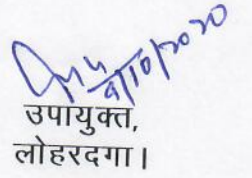 9/10/2020
उपायुक्त,
लोहरदगा।